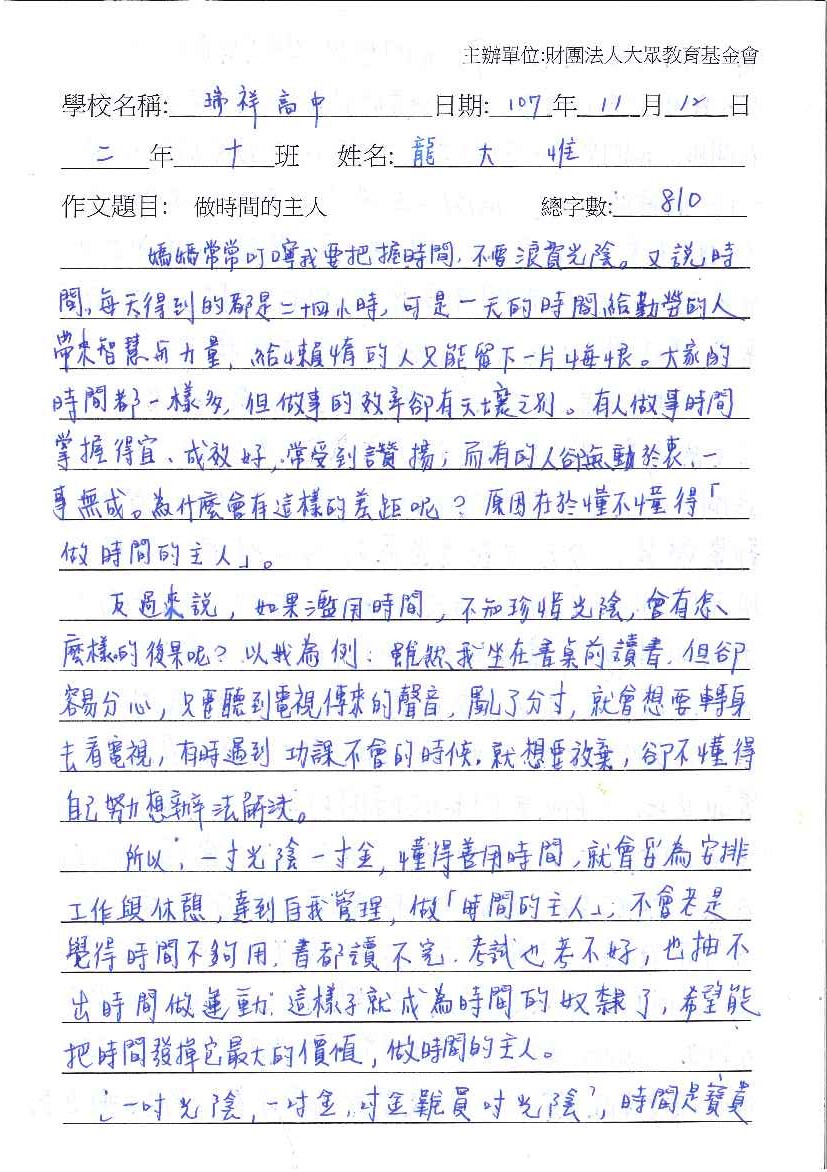 主辦單位:財團法人大眾教育基金會
學校名稱: 瑞祥高中 日期: 107 年 11 月 12 日
二 年 十 班 姓名: 龍大惟
作文題目: 做時間的主人 總字數: 810
媽媽常常叮嚀我要把握時間,不要浪費光陰。又說時
間,每天得到的都是二十四小時,可是一天的時間給勤勞的人
帶來智慧与力量,給懶惰的人只能留下一片悔恨。大家的
時間都一樣多,但做事的效率卻有天壤之別。有人做事時間
掌握得宜、成效好,常受到讚揚;而有的人卻無動於衷、一
事無成。為什麼會有這樣的差距呢?原因在於懂不懂得「
做時間的主人」。
反過來說,如果濫用時間,不知珍惜光陰,會有怎
麼樣的後果呢?以我為例:雖然我坐在書桌前讀書,但卻
容易分心,只要聽到電視傳來的聲音,亂了分寸,就會想要轉身
去看電視,有時遇到功課不會的時候,就想要放棄,卻不懂得
自己努力想辦法解決。
所以,一寸光陰一寸金,懂得善用時間,就會妥為安排
工作與休憩,達到自我管理,做「時間的主人」,不會老是
覺得時間不夠用,書都讀不完,考試也考不好,也抽不
出時間做運動,這樣子就成為時間的奴隸了,希望能
把時間發揮它最大的價值,做時間的主人。
「一吋光陰,一吋金,吋金難買吋光陰」,時間是寶貴